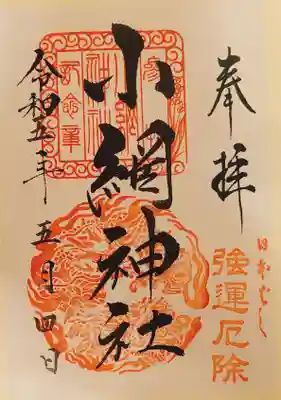 奉拝
日本ばし
強運厄除
小網神社
令和五年五月四日